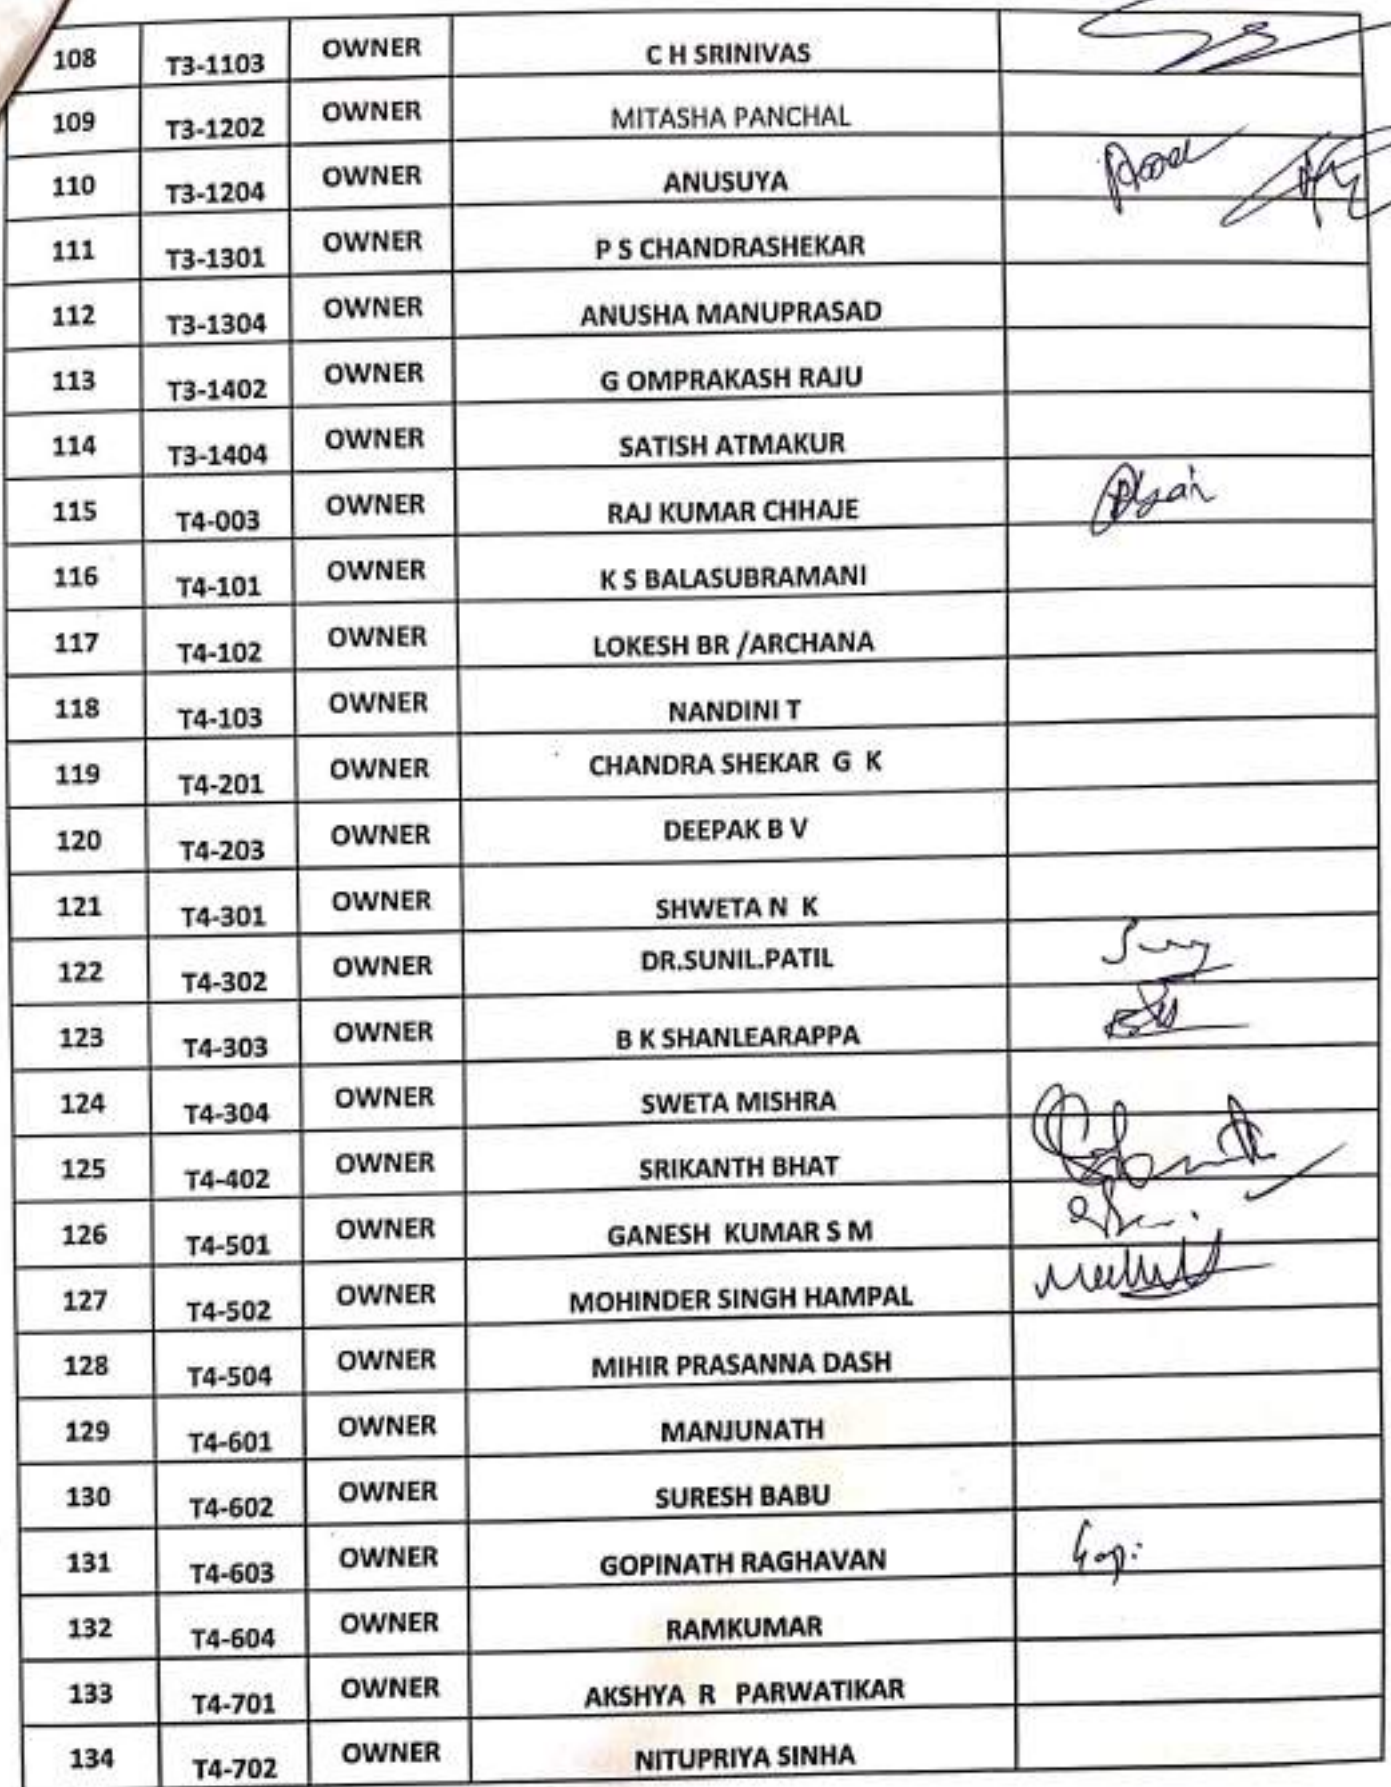 108 T3-1103 OWNER C H SRINIVAS
109 T3-1202 OWNER MITASHA PANCHAL
110 T3-1204 OWNER ANUSUYA
111 T3-1301 OWNER P S CHANDRASHEKAR
112 T3-1304 OWNER ANUSHA MANUPRASAD
113 T3-1402 OWNER G OMPRAKASH RAJU
114 T3-1404 OWNER SATISH ATMAKUR
115 T4-003 OWNER RAJ KUMAR CHHAJE
116 T4-101 OWNER K S BALASUBRAMANI
117 T4-102 OWNER LOKESH BR /ARCHANA
118 T4-103 OWNER NANDINI T
119 T4-201 OWNER CHANDRA SHEKAR G K
120 T4-203 OWNER DEEPAK B V
121 T4-301 OWNER SHWETA N K
122 T4-302 OWNER DR.SUNIL.PATIL
123 T4-303 OWNER B K SHANLEARAPPA
124 T4-304 OWNER SWETA MISHRA
125 T4-402 OWNER SRIKANTH BHAT
126 T4-501 OWNER GANESH KUMAR S M
127 T4-502 OWNER MOHINDER SINGH HAMPAL
128 T4-504 OWNER MIHIR PRASANNA DASH
129 T4-601 OWNER MANJUNATH
130 T4-602 OWNER SURESH BABU
131 T4-603 OWNER GOPINATH RAGHAVAN Gopi
132 T4-604 OWNER RAMKUMAR
133 T4-701 OWNER AKSHYA R PARWATIKAR
134 T4-702 OWNER NITUPRIYA SINHA